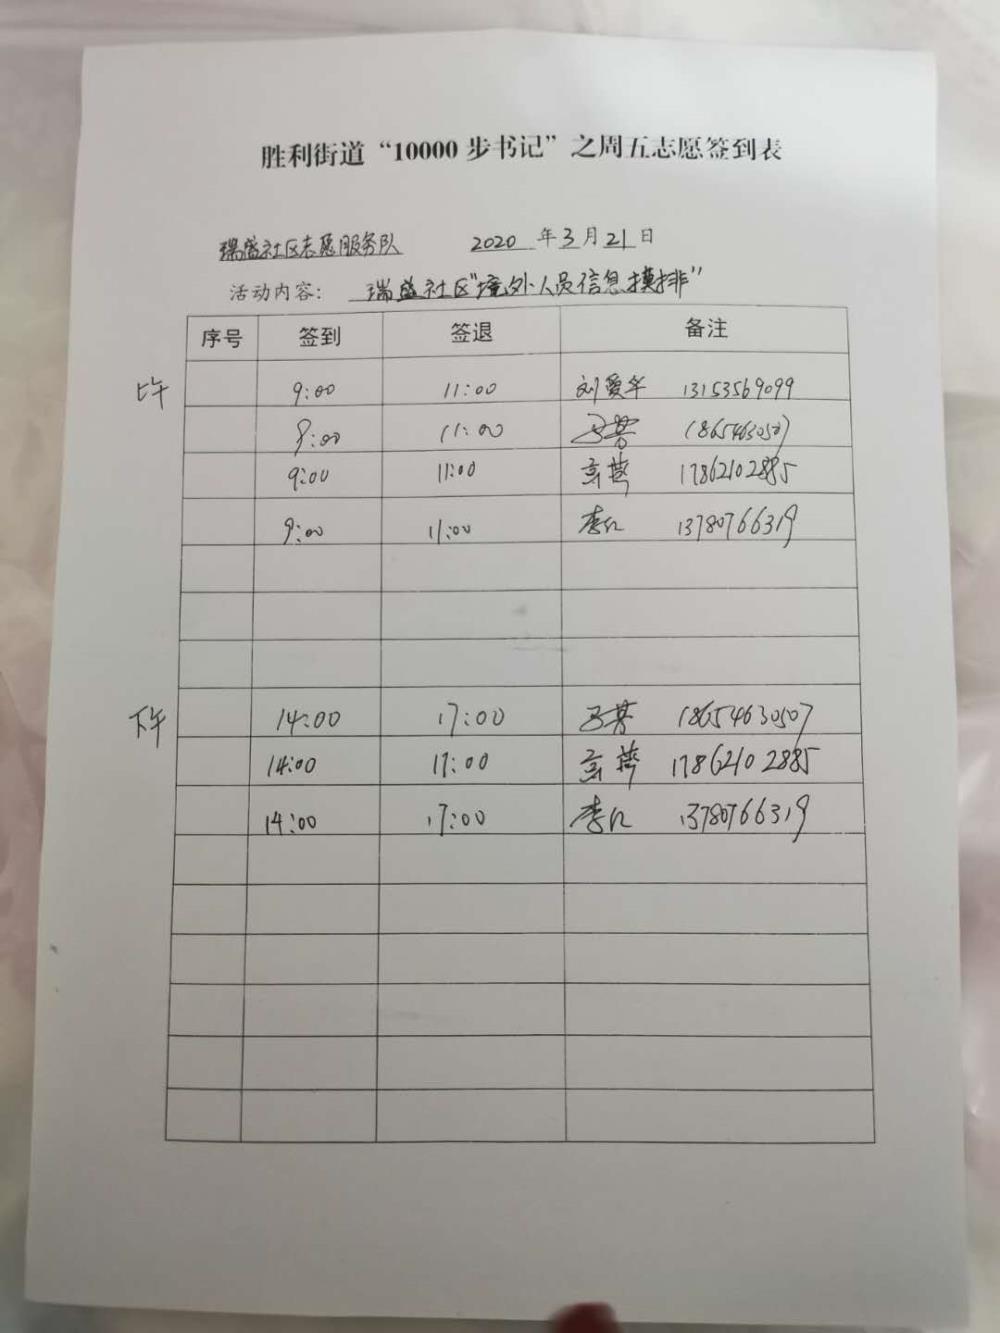 胜利街道“10000步书记”之周五志愿签到表
瑞盛社区志愿服务队 2020年3月21日
活动内容：瑞盛社区“境外人员信息摸排”
序号 签到 签退 备注
上午 9:00 11:00 刘爱华 13153569099
9:00 11:00 18654630507
9:00 11:00 17862102885
9:00 11:00 13780766319
下午 14:00 17:00 18654630507
14:00 17:00 17862102885
14:00 17:00 13780766319